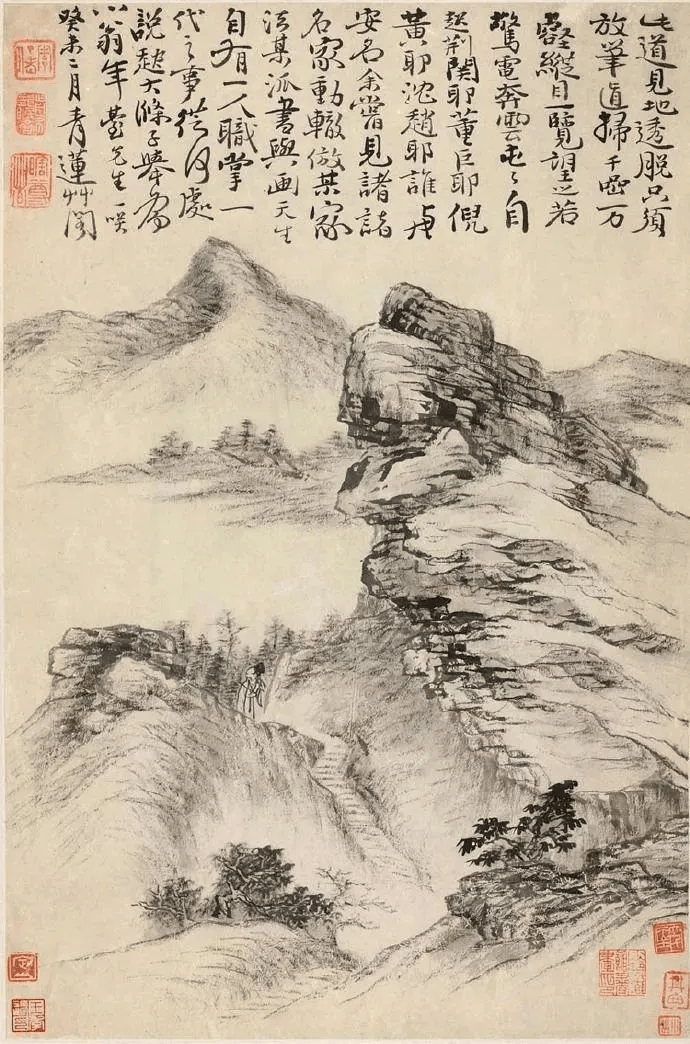 此道見地透脫只須
放筆直掃千巖万
壑縱目一覽望之若
驚電奔雲屯〻自
起荊関耶董巨耶倪
黃耶沈趙耶誰与
安名余嘗見諸諸
名家動轍倣某家
法某派書與画天生
自有一人職掌一
代之事從何處
說起大滌子舉為
翁年臺先生一咲
癸未二月青蓮艸閣